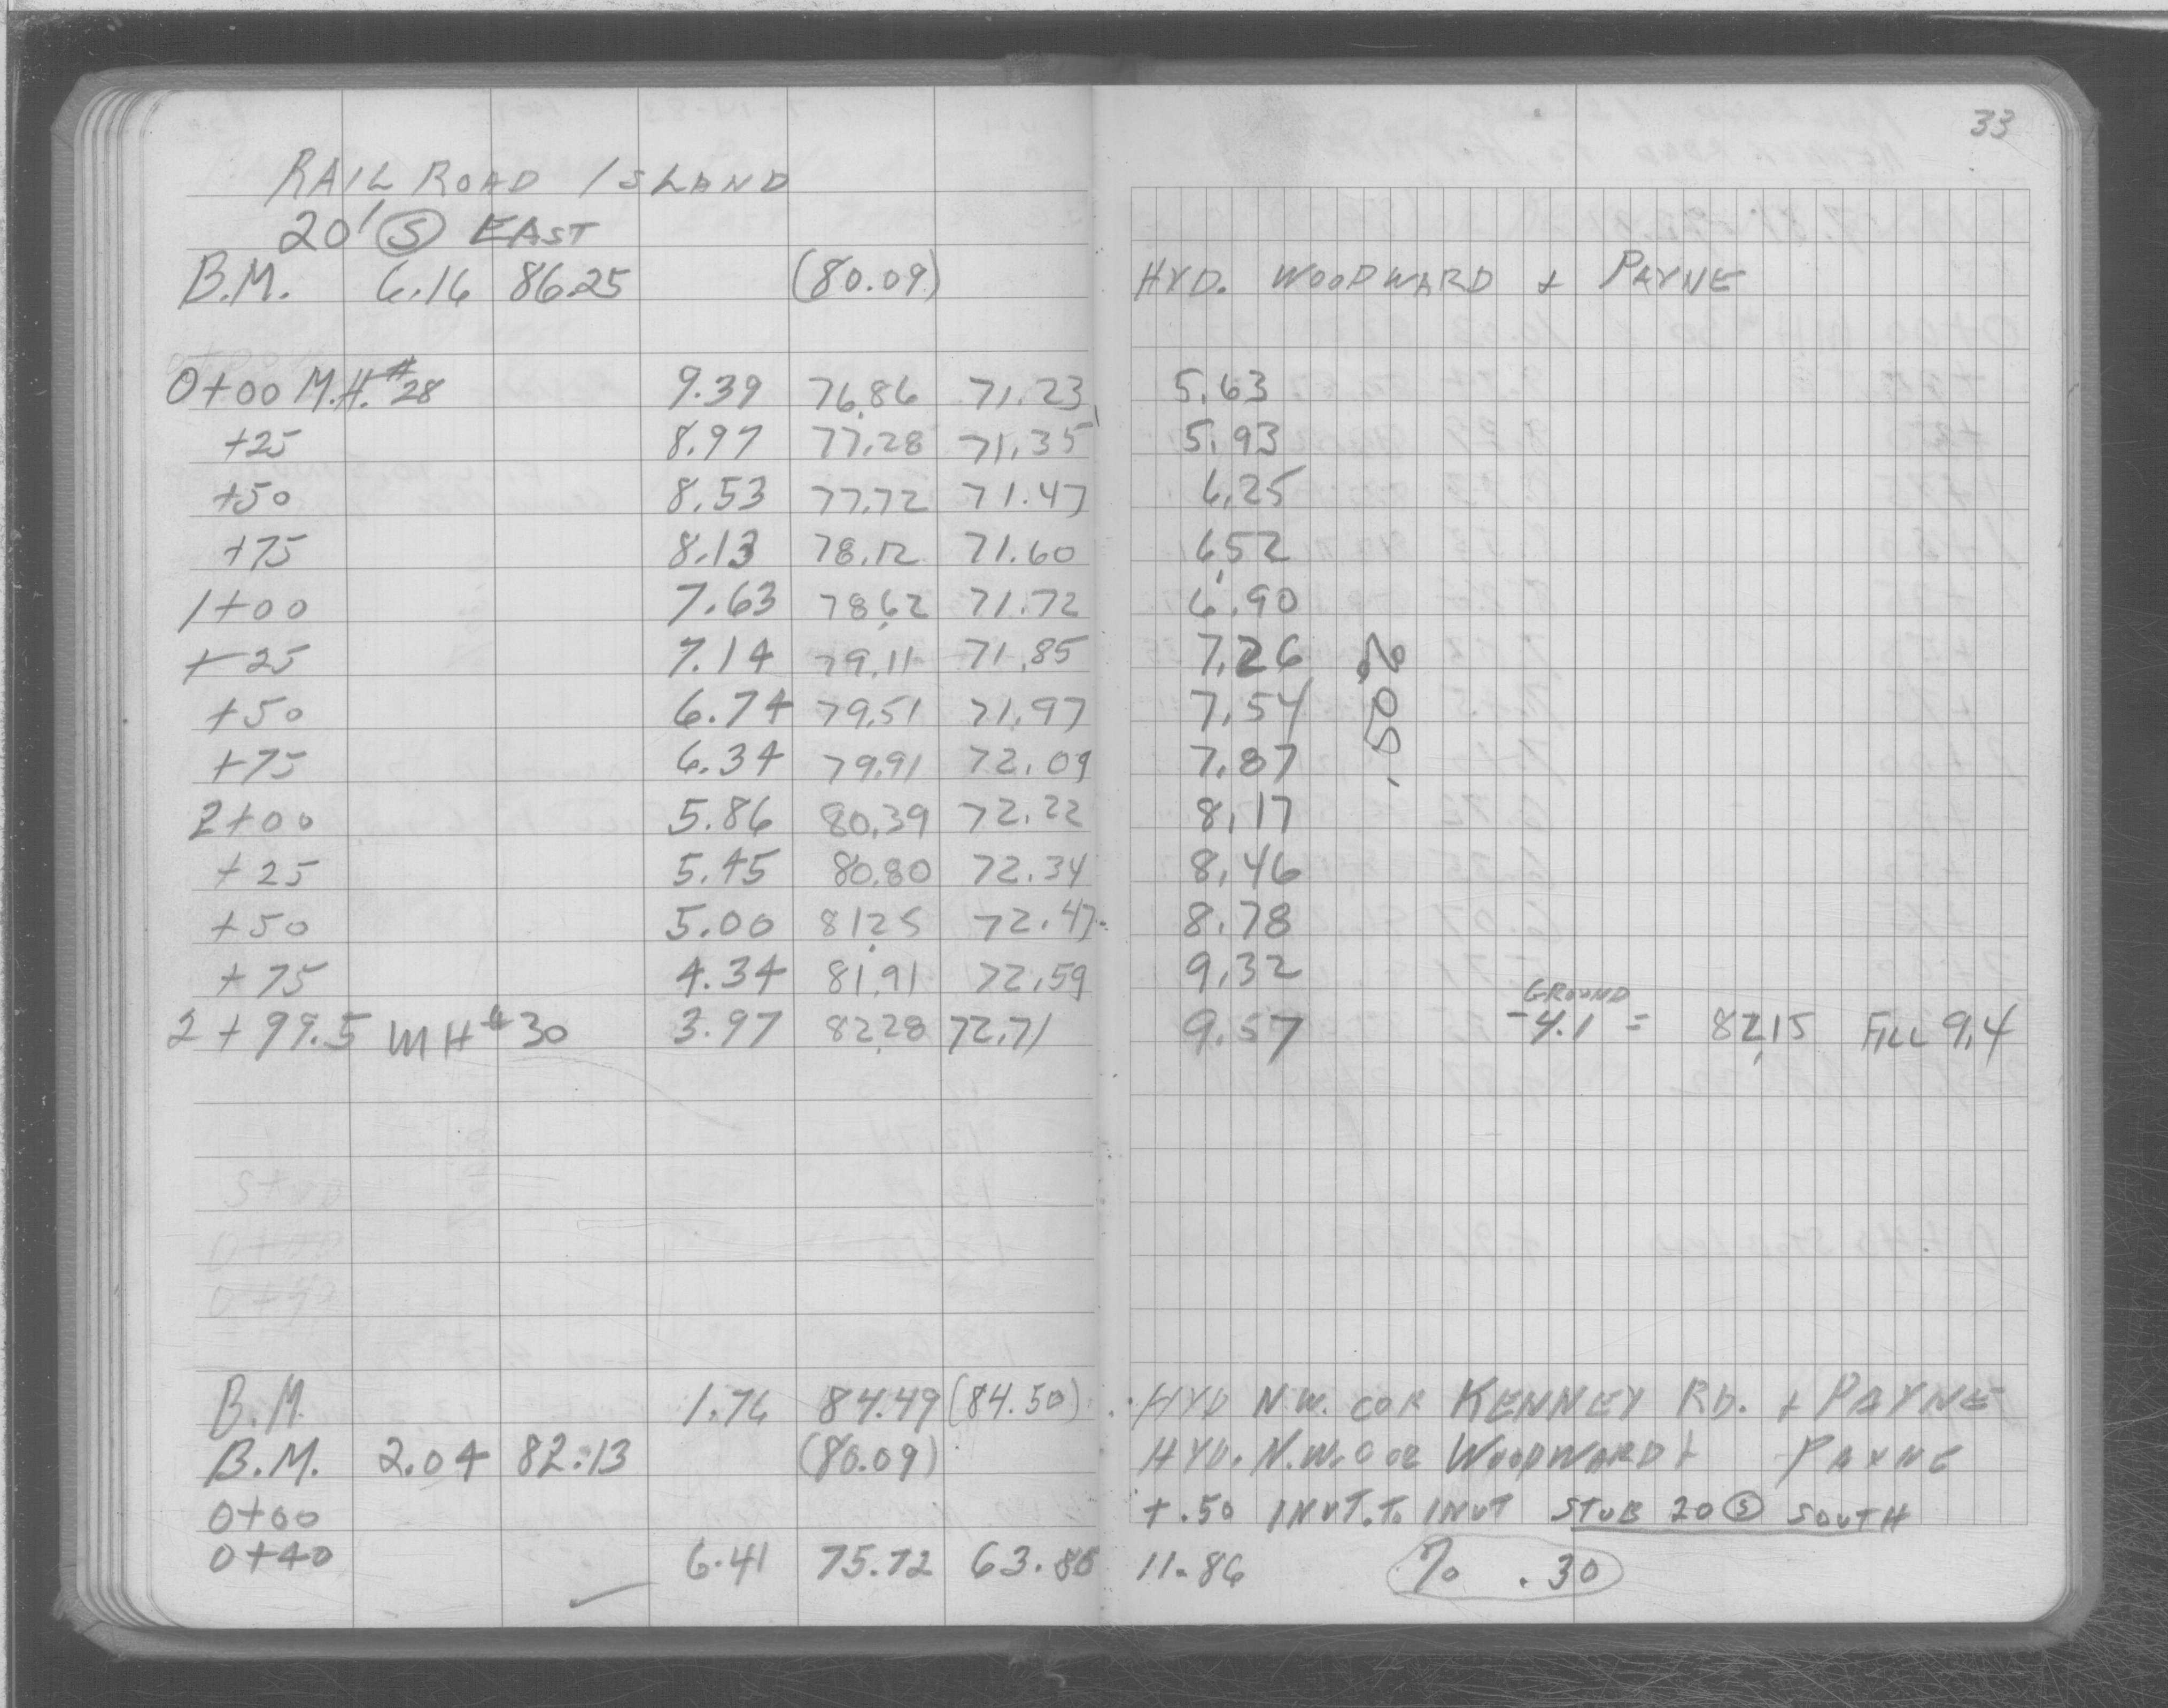 33
RAIL ROAD ISLAND
20' Ⓢ EAST
B.M. 6.16 86.25 (80.09) HYD. WOODWARD + PAYNE
0+00 M.H.#28 9.39 76.86 71.23 5.63
+25 8.97 77.28 71.35 5.93
+50 8.53 77.72 71.47 6.25
+75 8.13 78.12 71.60 6.52
1+00 7.63 78.62 71.72 6.90
+25 7.14 79.11 71.85 7.26
+50 6.74 79.51 71.97 7.54
+75 6.34 79.91 72.09 7.87
.50%
2+00 5.86 80.39 72.22 8.17
+25 5.45 80.80 72.34 8.46
+50 5.00 81.25 72.47 8.78
+75 4.34 81.91 72.59 9.32
GROUND
2+99.5 MH#30 3.97 82.28 72.71 9.57 -4.1 = 82.15 FILL 9.4
STUB
0+00
0+49
B.M. 1.76 84.49 (84.50) HYD N.W. COR KENNEY RD. + PAYNE
B.M. 2.04 82.13 (80.09) HYD. N.W. COR WOODWARD + PAYNE
0+00 +.50 INVT. TO INVT STUB 20 Ⓢ SOUTH
0+40 6.41 75.72 63.86 11.86 % .30